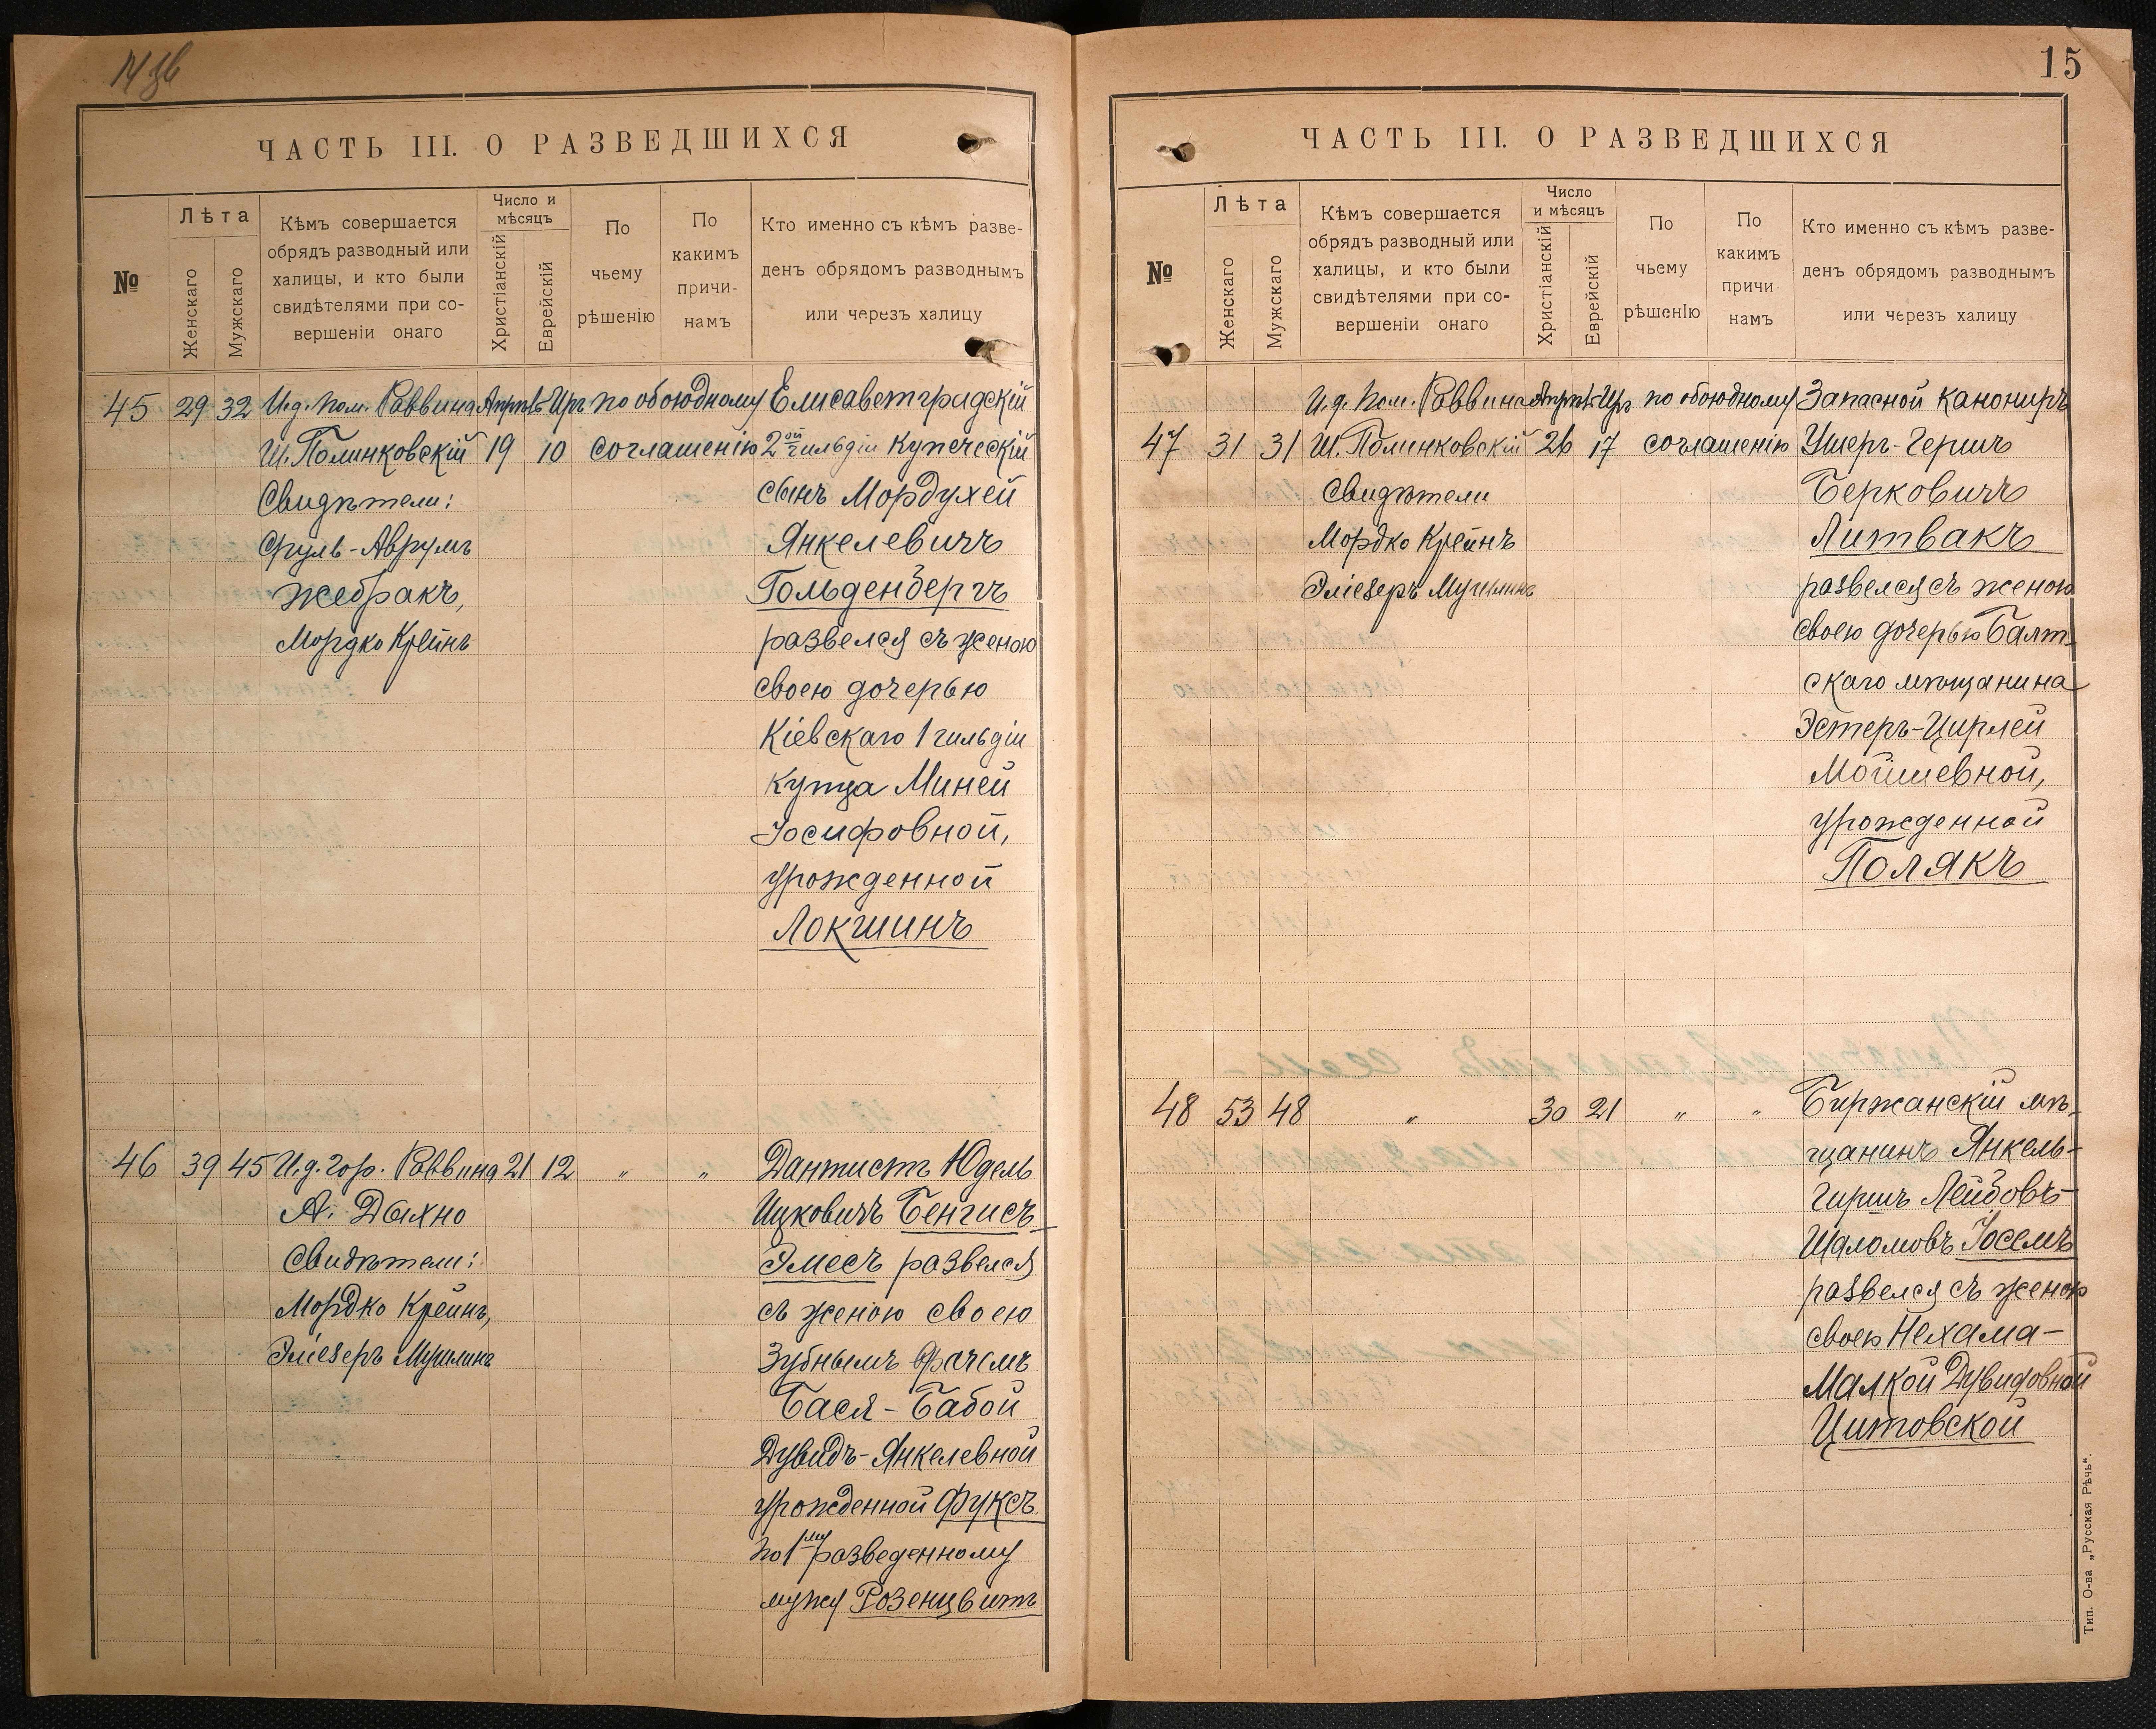 14 зв
ЧАСТЬ III. О РАЗВЕДШИХСЯ
№
Лѣта
Женскаго
Мужскаго
Кѣмъ совершается
обрядъ разводный или
халицы, и кто были
свидѣтелями при со-
вершеніи онаго
Число и
мѣсяцъ
Христіанскій
Еврейскій
По
чьему
рѣшенію
По
какимъ
причи-
намъ
Кто именно съ кѣмъ разве-
денъ обрядомъ разводнымъ
или черезъ халицу
45 29 32 И.д. пом. Раввина Апрѣль Иръ по обоюдному Елисаветградскій
Ш. Полинковскій 19 10 соглашенію 2ой гильдіи Купеческій
Свидѣтели: сынъ Мордухей
Сруль-Аврумъ Янкелевичъ
Жебракъ, Гольденбергъ
Мордко Крейнъ развелся съ женою
своею дочерью
Кіевскаго 1 гильдіи
купца Миней
Іосифовной,
урожденной
Локшинъ
46 39 45 И.д. гор. Раввина 21 12 " " Дантистъ Юдель
А. Дыхно Ицковичъ Бенгисъ-
Свидѣтели: Элесъ развелся
Мордко Крейнъ, съ женою своею
Эліезеръ Мушлинъ Зубнымъ врачемъ
Бася-Бабой
Дувидъ-Янкелевной
урожденной Фуксъ
по 1му разведенному
мужу Розенцвитъ
15
ЧАСТЬ III. О РАЗВЕДШИХСЯ
№
Лѣта
Женскаго
Мужскаго
Кѣмъ совершается
обрядъ разводный или
халицы, и кто были
свидѣтелями при со-
вершеніи онаго
Число
и мѣсяцъ
Христіанскій
Еврейскій
По
чьему
рѣшенію
По
какимъ
причи
намъ
Кто именно съ кѣмъ разве-
денъ обрядомъ разводнымъ
или черезъ халицу
И.д. пом. Раввина Апрѣль Иръ по обоюдному Запасной канониръ
47 31 31 Ш. Полинковскій 26 17 соглашенію Ушеръ-Гершъ
Свидѣтели Берковичъ
Мордко Крейнъ Литвакъ
Эліезеръ Мушлинъ развелся съ женою
своею дочерью Балт-
скаго мѣщанина
Эстеръ-Цирлей
Мойшевной,
урожденной
Полякъ
48 53 48 " 30 21 " " Биржанскій мѣ-
щанинъ Янкель-
Гиршъ Лейбовъ-
Шаломовъ Іосемъ
развелся съ женою
своею Нехама-
Малкой Дувидовной
Цитовской
Тип. О-ва „Русская Рѣчь“.